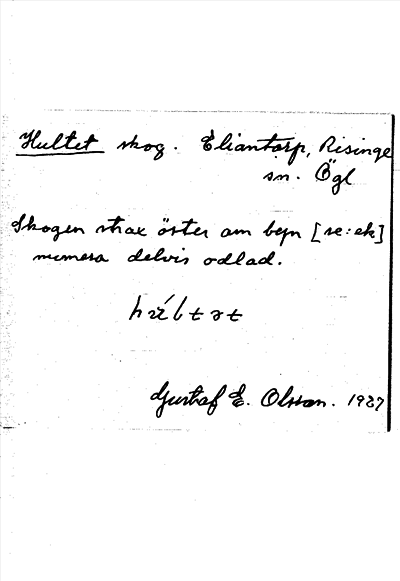 Hultet skog. Eliantorp, Risinge
sn. Ögl
Skogen strax öster om byn [se: ek]
numera delvis odlad.
Gustaf E. Olsson. 1927